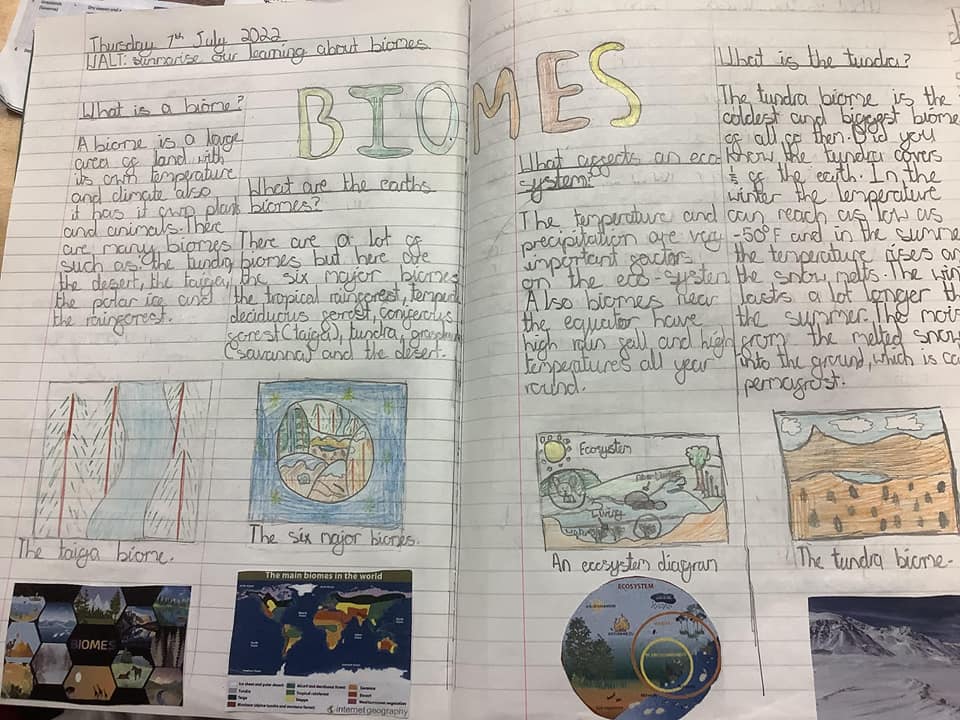 Thursday 7th July 2022
WALT: summarise our learning about biomes
BIOMES
What is a biome?
A biome is a large
area of land with
its own temperature
and climate also
it has it own plants
and animals. There
are many biomes
such as: the tundra,
the desert, the taiga,
the polar ice and
the rainforest.
What are the earths
biomes?
There are a lot of
biomes but here are
the six major biomes
the tropical rainforest,
deciduous forest, coniferous
forest (taiga), tundra,
(savanna) and the desert.
The taiga biome.
The six major biomes.
BIOMES
The main biomes in the world
Ice sheet and polar desert
Tundra
Taiga
Tropical rainforest
Steppe
Savanna
Desert
internet geography
What affects an eco
system?
The temperature and
precipitation are very
important factors
on the eco-system
Also biomes near
the equator have
high rain fall and high
temperatures all year
round.
Ecosystem
Living
An ecosystem diagram
ECOSYSTEM
What is the tundra?
The tundra biome is the
coldest and biggest biome
of all of then. Did you
know the tundra covers
⅕ of the earth. In the
winter the temperature
can reach as low as
-50°F and in the summe
the temperature rises an
the snow melts. The win
lasts a lot longer th
the summer. The mois
from the melted snow
into the ground, which is ca
permafrost.
The tundra biome.